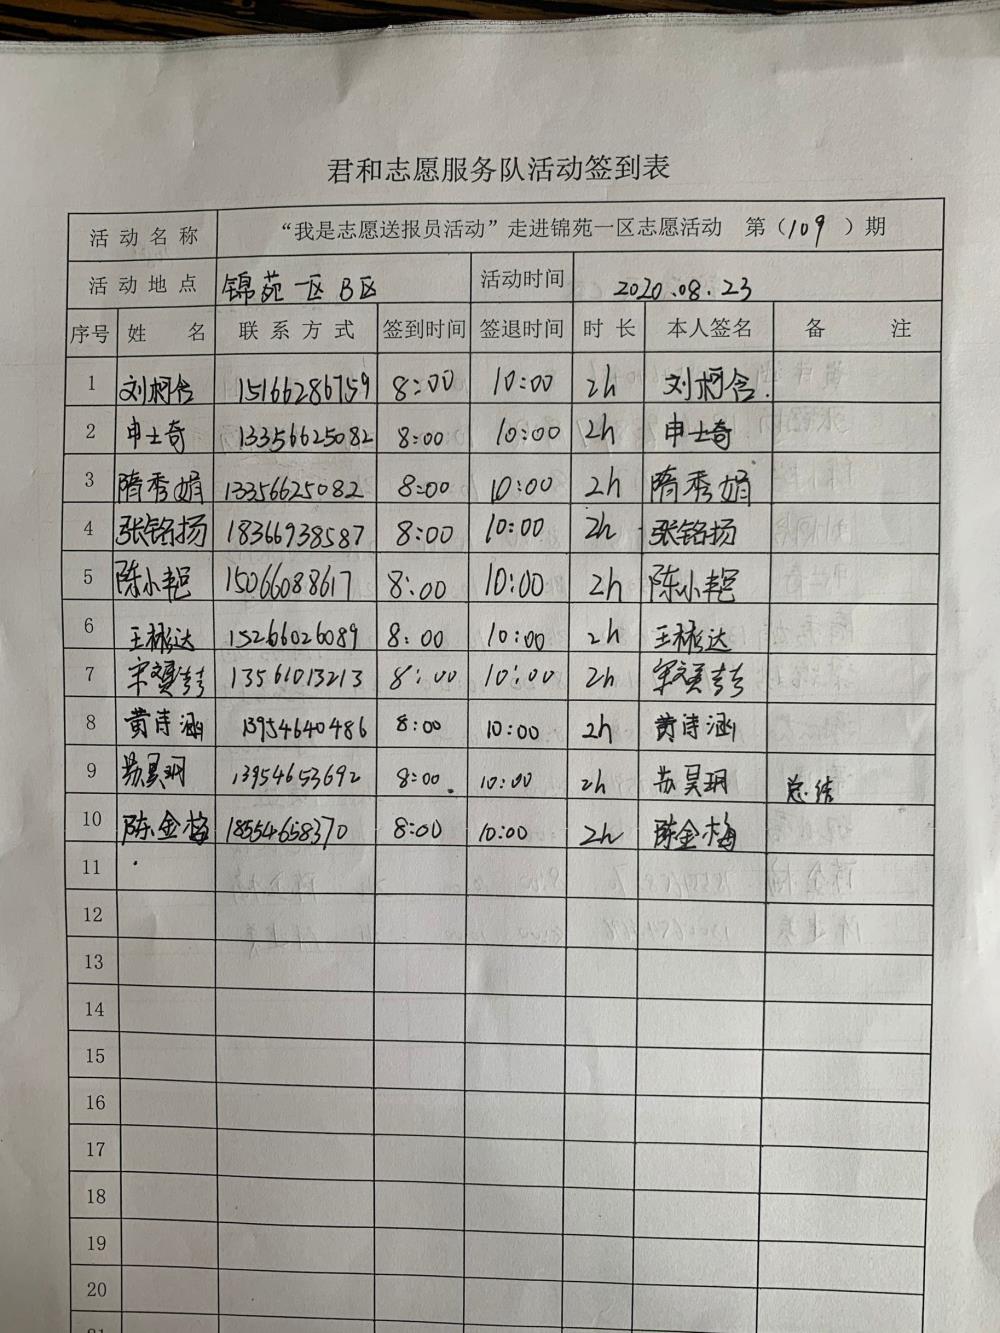 君和志愿服务队活动签到表
活动名称 “我是志愿送报员活动”走进锦苑一区志愿活动 第（109）期
活动地点 锦苑一区B区 活动时间 2020.08.23
序号 姓名 联系方式 签到时间 签退时间 时长 本人签名 备注
1 刘柯含 15166286759 8:00 10:00 2h 刘柯含.
2 申士奇 13356625082 8:00 10:00 2h 申士奇
3 隋秀娟 13356625082 8:00 10:00 2h 隋秀娟
4 张铭扬 18366938587 8:00 10:00 2h 张铭扬
5 陈小艳 15066088617 8:00 10:00 2h 陈小艳
6 王彬达 15266026089 8:00 10:00 2h 王彬达
7 宋 13561013213 8:00 10:00 2h 宋
8 黄诗涵 13954640486 8:00 10:00 2h 黄诗涵
9 苏昊玥 13954653692 8:00 10:00 2h 苏昊玥 总结
10 陈金梅 18554658370 8:00 10:00 2h 陈金梅
11
12
13
14
15
16
17
18
19
20
21